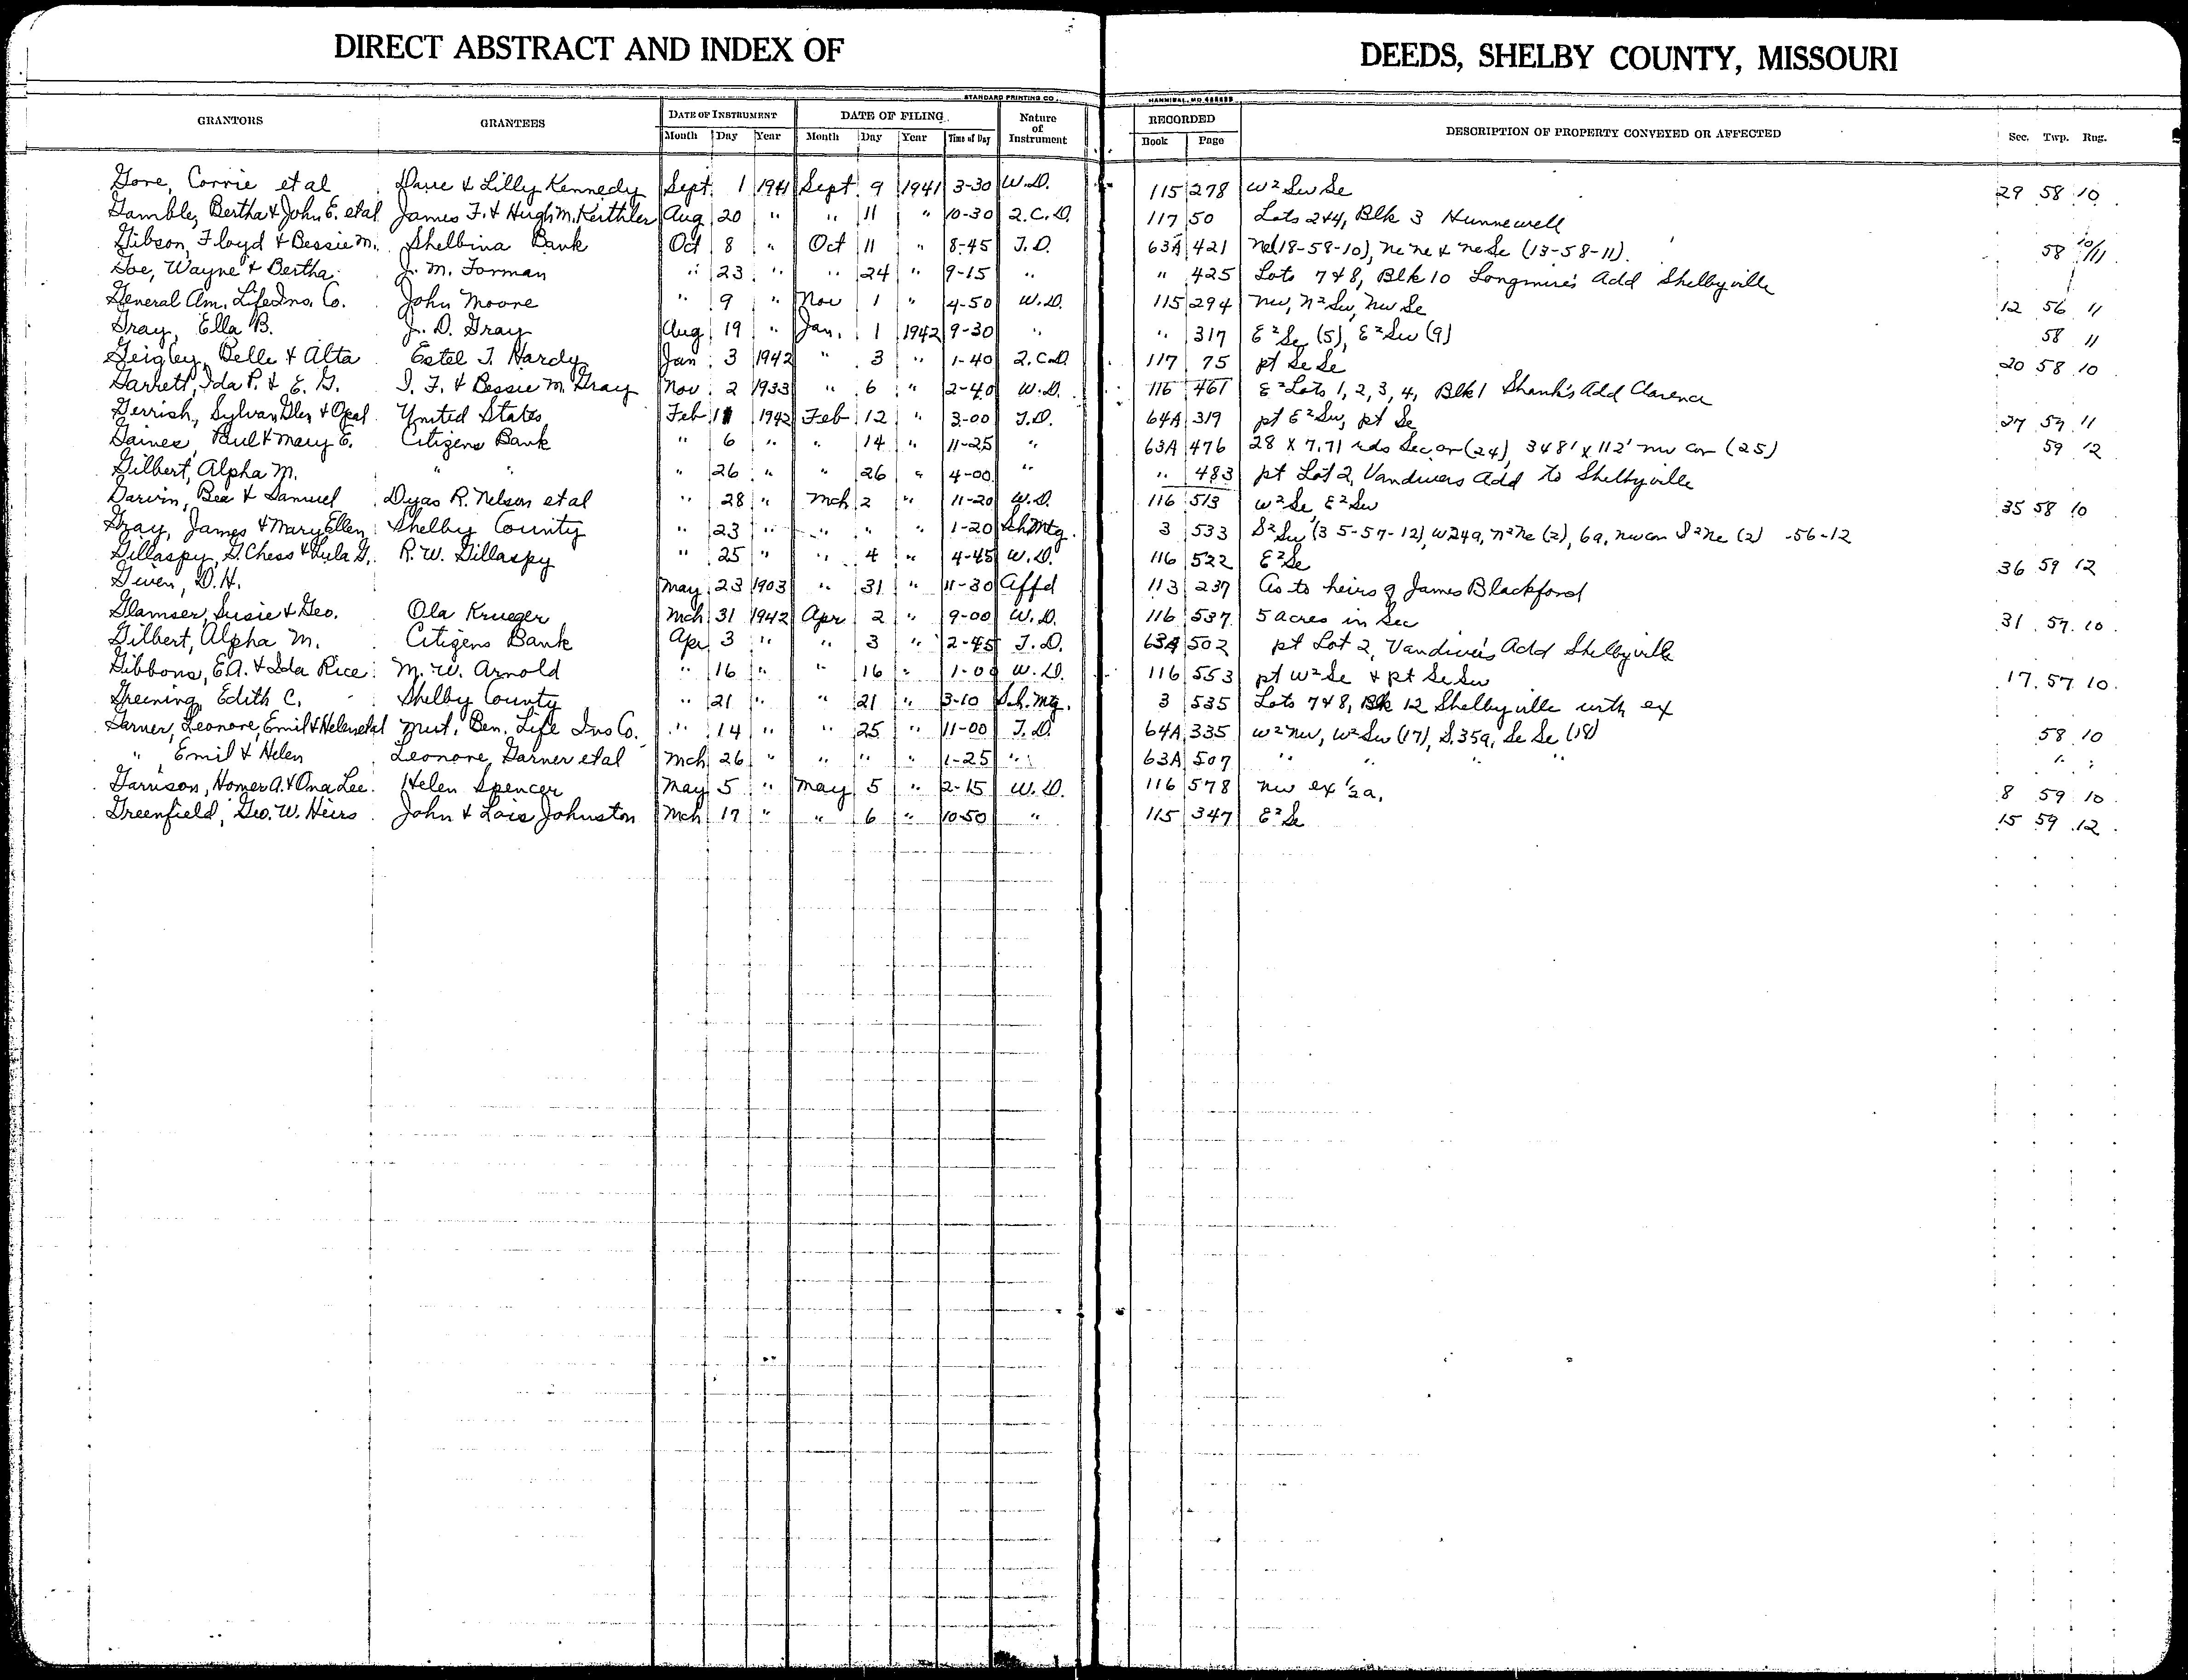 DIRECT ABSTRACT AND INDEX OF DEEDS, SHELBY COUNTY, MISSOURI
STANDARD PRINTING CO., HANNIBAL, MO.
GRANTORS GRANTEES DATE OF INSTRUMENT DATE OF FILING Nature of Instrument RECORDED DESCRIPTION OF PROPERTY CONVEYED OR AFFECTED Sec. Twp. Rng.
Month Day Year Month Day Year Time of Day Book Page
Gore, Corrie et al Dave & Lilly Kennedy Sept 1 1941 Sept 9 1941 3-30 W.D. 115 278 W² Sw Se 29 58 10
Gamble, Bertha & John E. etal James F. & Hugh M. Keithler Aug 20 " " 11 " 10-30 Q.C.D. 117 50 Lots 2&4, Blk 3 Hunnewell
Gibson, Floyd & Bessie M. Shelbina Bank Oct 8 " Oct 11 " 8-45 T.D. 63A 421 Ne (18-58-10), Ne Ne & Ne Se (13-58-11). 58 10/11
Goe, Wayne & Bertha J. M. Forman " 23 " " 24 " 9-15 " " 425 Lots 7&8, Blk 10 Longmire's Add Shelbyville
General Am. Life Ins. Co. John Moore " 9 " Nov 1 " 4-50 W.D. 115 294 Nw, N² Sw, Nw Se 12 56 11
Gray, Ella B. J. D. Gray Aug 19 " Jan. 1 1942 9-30 " " 317 E² Se (5), E² Sw (9) 58 11
Geigley, Belle & Alta Estel T. Hardy Jan 3 1942 " 3 " 1-40 Q.C.D. 117 75 pt Se Se 20 58 10
Garrett, Ida P. & E. G. I. F. & Bessie M. Gray Nov 2 1933 " 6 " 2-40 W.D. 116 461 E² Lots 1, 2, 3, 4, Blk 1 Shank's Add Clarence
Gerrish, Sylvan Glen & Opal United States Feb 11 1942 Feb 12 " 3-00 T.D. 64A 319 pt E² Sw, pt Se 27 59 11
Gaines, Paul & Mary E. Citizens Bank " 6 " " 14 " 11-25 " 63A 476 28 x 7.71 rds Se cor (24), 348' x 112' nw cor (25) 59 12
Gilbert, Alpha M. " " " 26 " " 26 " 4-00 " " 483 pt Lot 2, Vandivers Add to Shelbyville
Garvin, Bea & Samuel Dyas R. Nelson et al " 28 " Mch 2 " 11-20 W.D. 116 513 W² Se, E² Sw 35 58 10
Gray, James & Mary Ellen Shelby County " 23 " " " " 1-20 Sch Mtg. 3 533 S² Sw (35-57-12), W 24a, N² Ne (2), 6a, nw cor S² Ne (2) -56-12
Gillaspy, G. Chess & Lula G. R. W. Gillaspy " 25 " " 4 " 4-45 W.D. 116 522 E² Se 36 59 12
Gwen, D. H. May 23 1903 " 31 " 11-30 Affd 113 237 As to heirs of James Blackford
Glamser, Susie & Geo. Ola Krueger Mch 31 1942 Apr 2 " 9-00 W.D. 116 537 5 acres in Sec 31 57 10
Gilbert, Alpha M. Citizens Bank Apr 3 " " 3 " 2-45 T.D. 63A 502 pt Lot 2, Vandiver's Add Shelbyville
Gibbons, E.A. & Ida Rice M. W. Arnold " 16 " " 16 " 1-00 W.D. 116 553 pt W² Se & pt Se Sw 17 57 10
Greening, Edith C. Shelby County " 21 " " 21 " 3-10 Sch. Mtg. 3 535 Lots 7&8, Blk 12 Shelbyville with ex
Garner, Leonore, Emil & Helen etal Mut. Ben. Life Ins Co. " 14 " " 25 " 11-00 T.D. 64A 335 W² Nw, W² Sw (17), S. 35a, Se Se (18) 58 10
" , Emil & Helen Leonore Garner et al Mch 26 " " " " 1-25 " 63A 507 " " " " " "
Garrison, Homer A. & Ona Lee Helen Spencer May 5 " May 5 " 2-15 W.D. 116 578 Nw ex ½ a. 8 59 10
Greenfield, Geo. W. Heirs John & Lois Johnston Mch 17 " " 6 " 10-50 " 115 347 E² Se 15 59 12